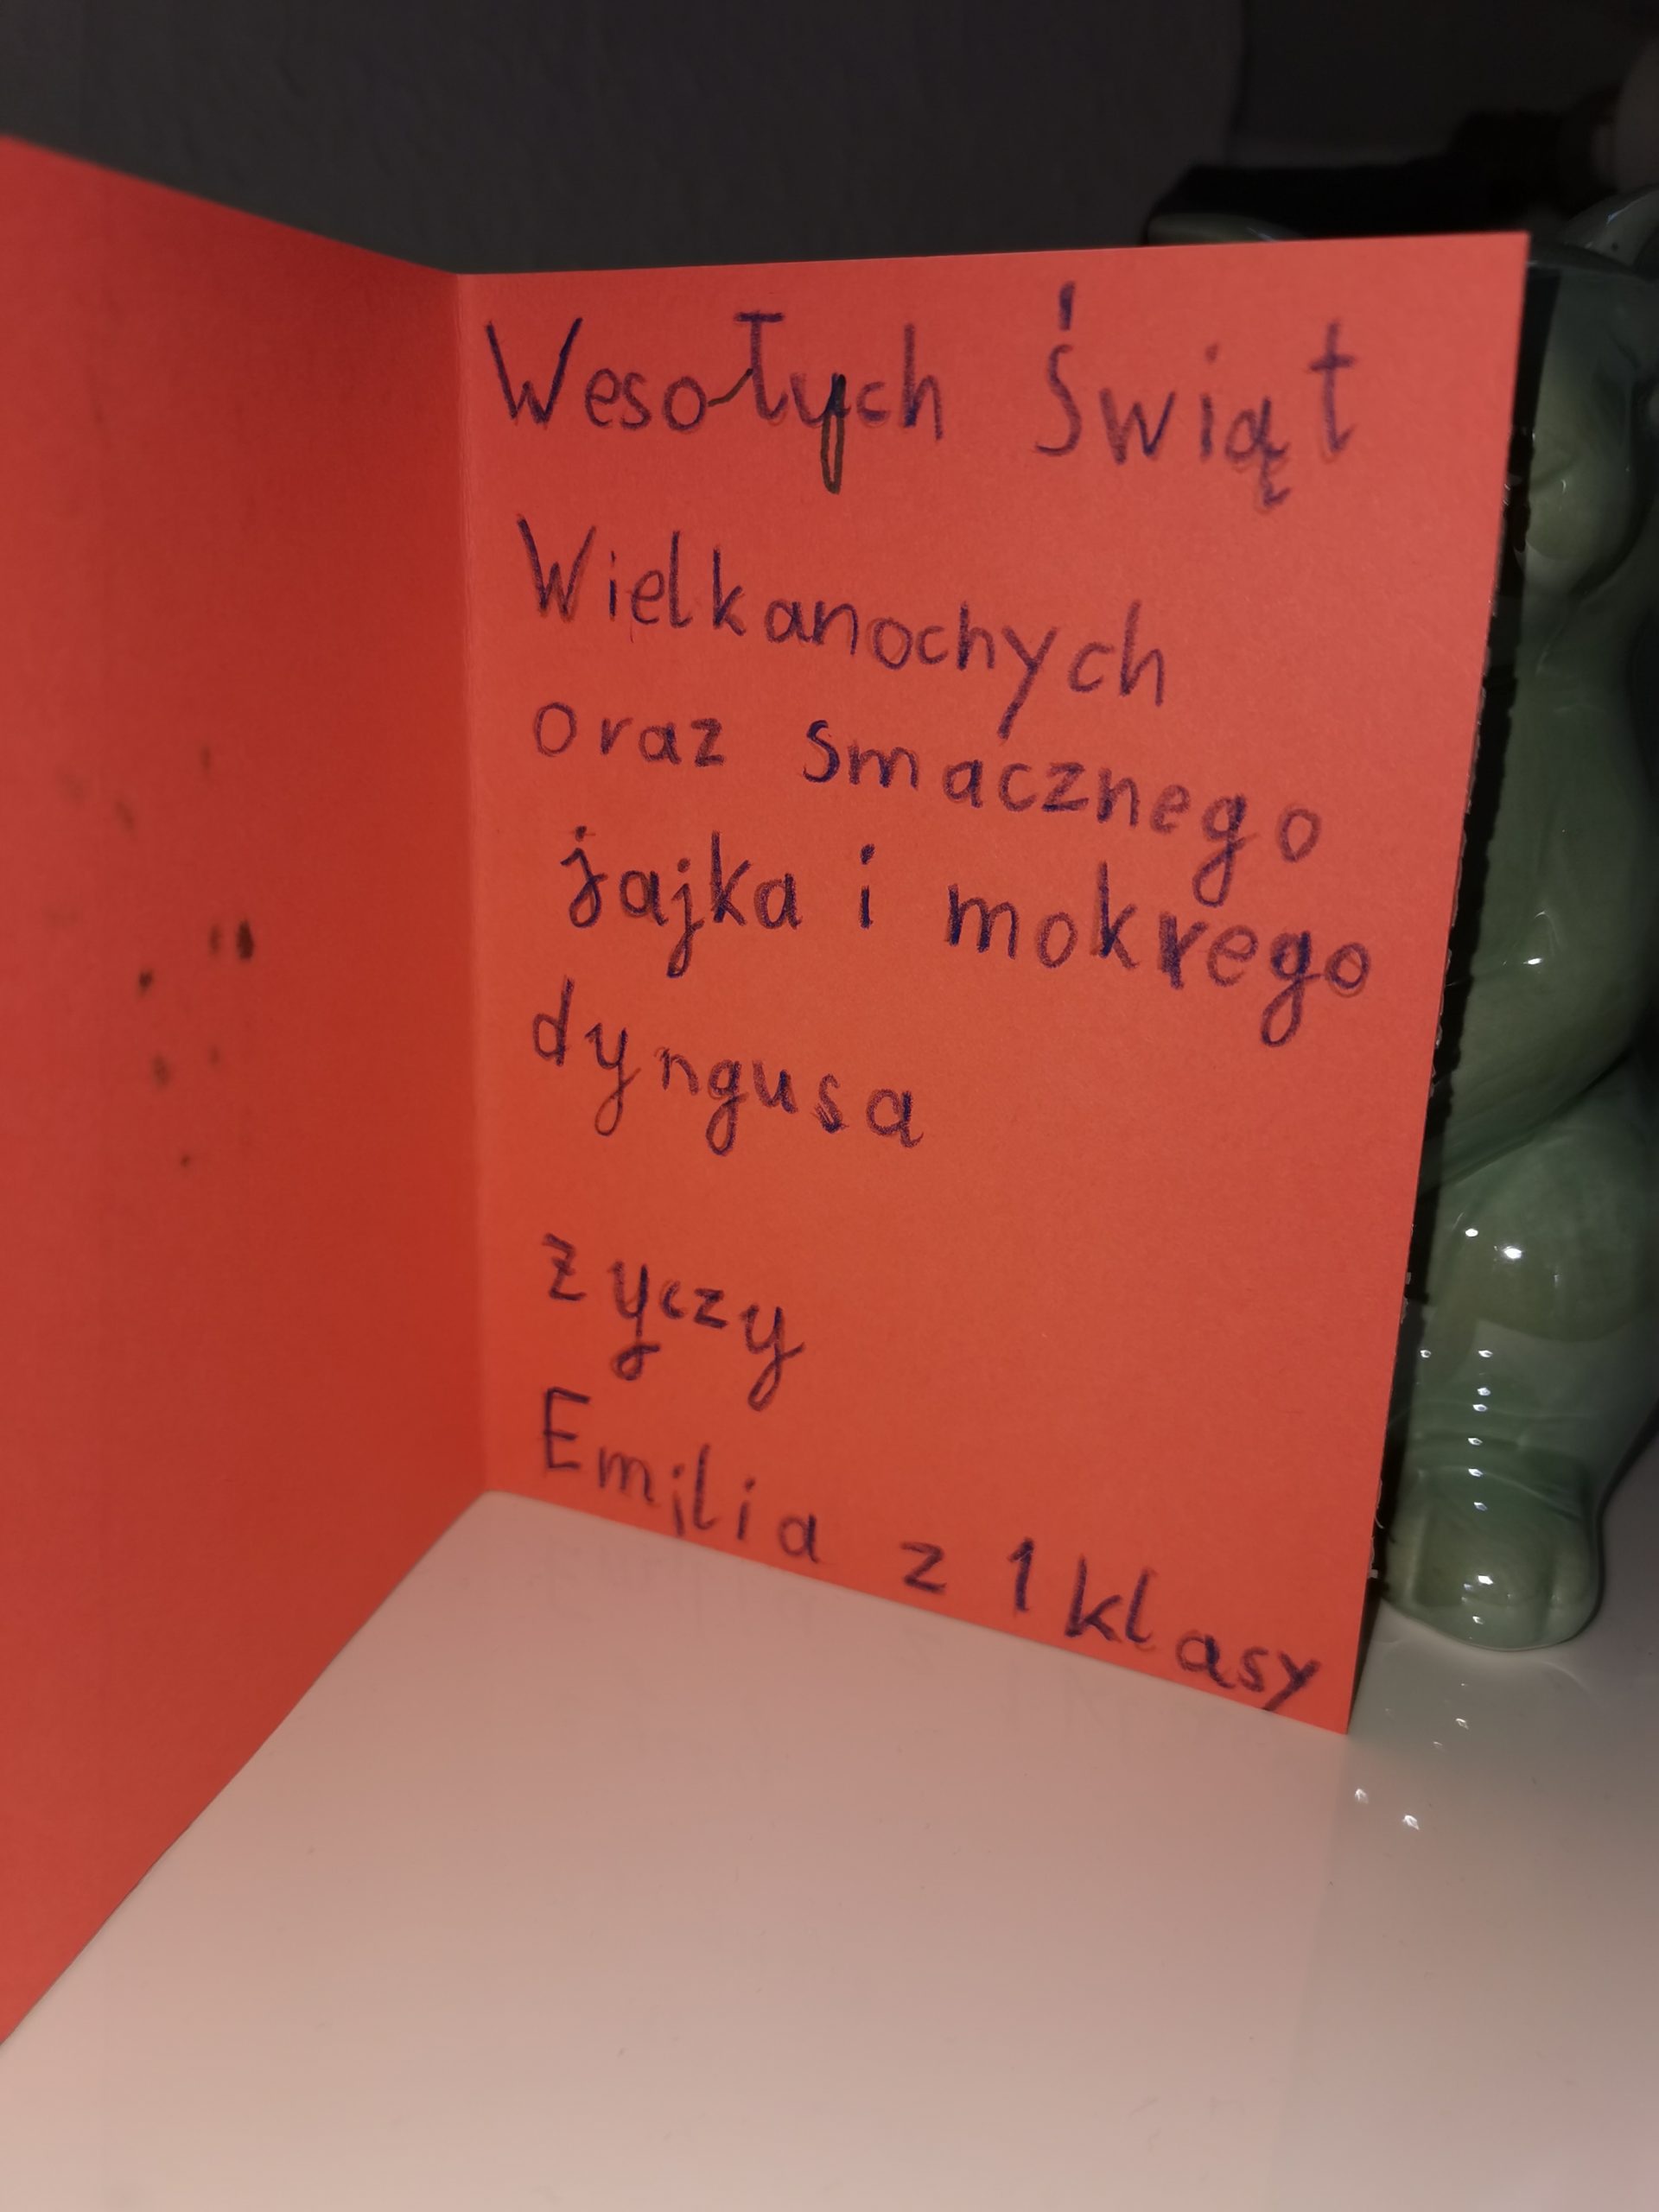 Wesołych Świąt
Wielkanochych
oraz smacznego
jajka i mokrego
dyngusa
zyczy
Emilia z 1 klasy